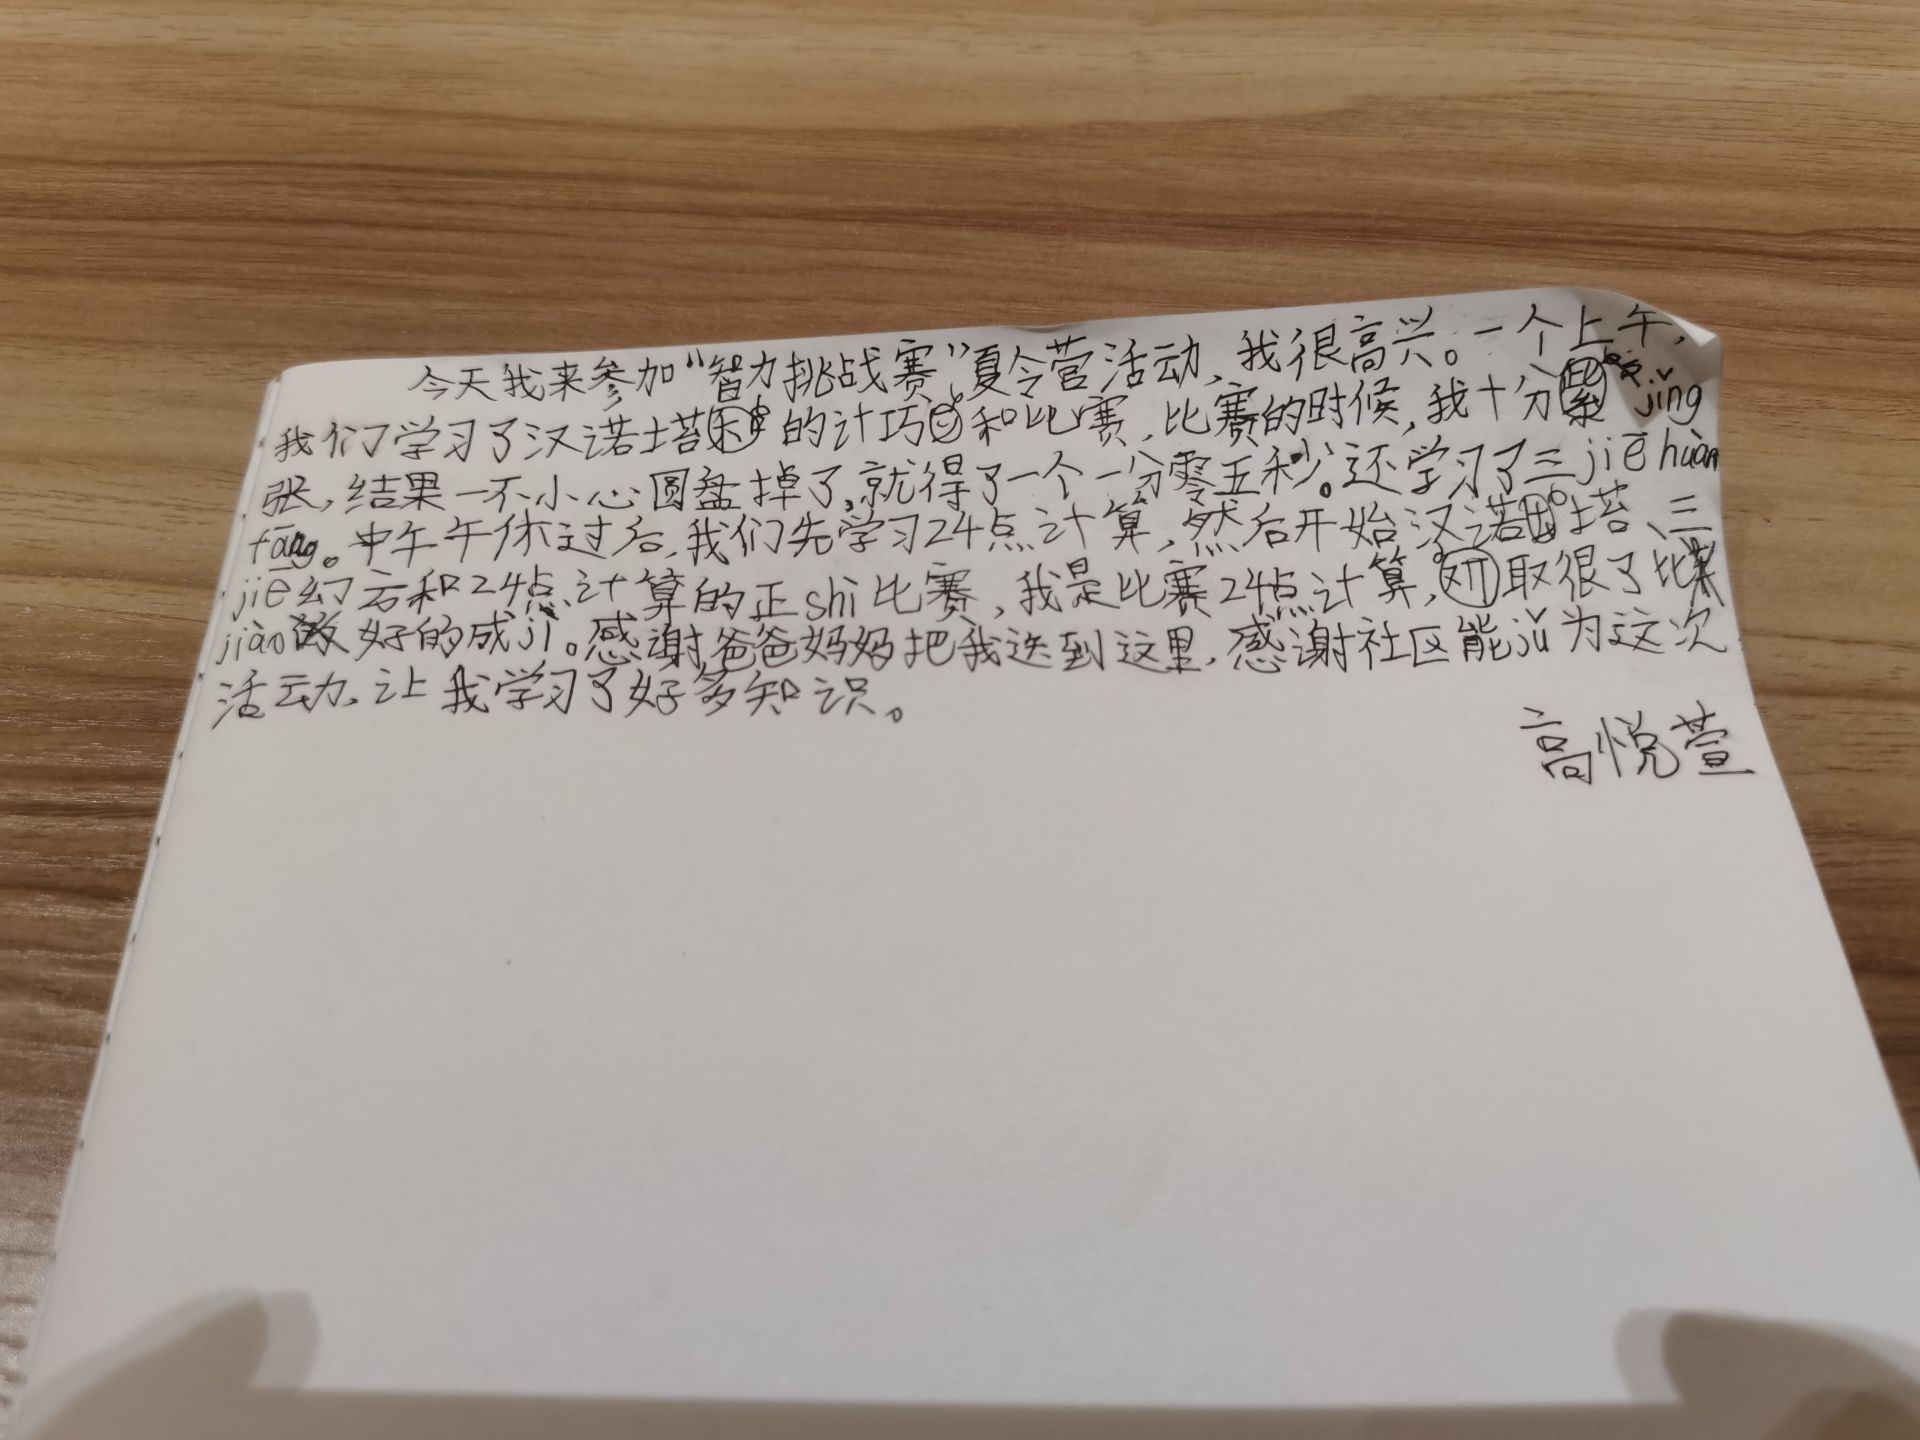 今天我来参加“智力挑战赛”夏令营活动,我很高兴。一个上午,
我们学习了汉诺塔的计巧和比赛,比赛的时候,我十分jǐng
张,结果一不小心圆盘掉了,就得了一个一分零五秒。还学习了三jiē huàn
fāng。中午午休过后,我们先学习24点计算,然后开始汉诺塔、三
jiē幻方和24点计算的正shì比赛,我是比赛24点计算,取很了比
jiàn好的成jì。感谢爸爸妈妈把我送到这里,感谢社区能jǔ为这次
活动,让我学习了好多知识。
高悦萱